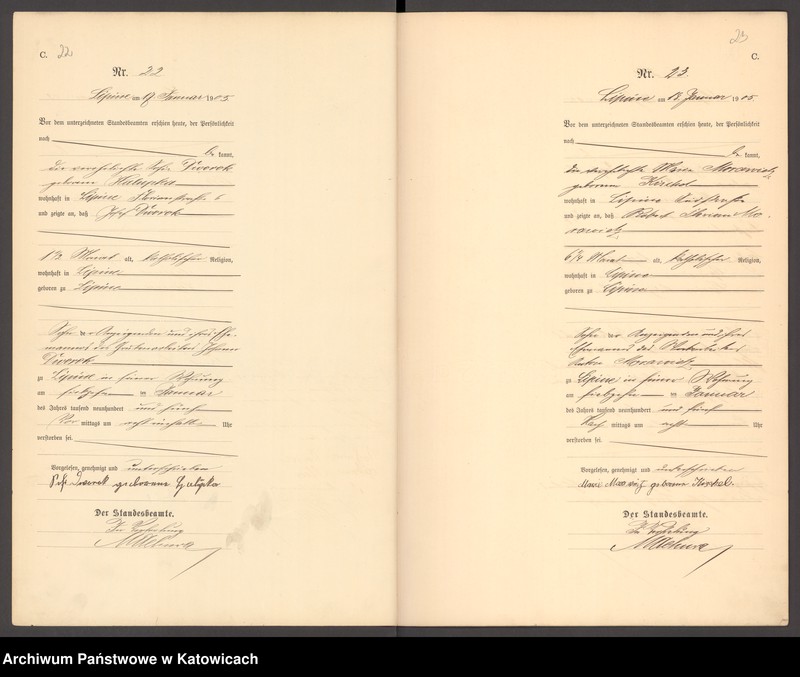 C. 22.
Nr. 22
Lipine am 17 Januar 1905
Vor dem unterzeichneten Standesbeamten erschien heute, der Persönlichkeit
nach
be kannt,
die verehelichte Dworok
geborene
wohnhaft in Lipine Florianstraße 6
und zeigte an, daß Josef Dworok
1 1/2 Monat alt, katholischer Religion,
wohnhaft in Lipine
geboren zu Lipine
Sohn der Anzeigenden und ihres Ehe-
mannes des Hüttenarbeiters Johann
Dworok
zu Lipine in seiner Wohnung
am siebzehn ten Januar
des Jahres tausend neunhundert und fünf
Vor mittags um acht einhalb Uhr
verstorben sei.
Vorgelesen, genehmigt und unterschrieben
Dworok geborene
Der Standesbeamte.
In Vertretung
23
C.
Nr. 23
Lipine am 18. Januar 1905
Vor dem unterzeichneten Standesbeamten erschien heute, der Persönlichkeit
nach
be kannt,
die verehelichte Marie Morawietz
geborene
wohnhaft in Lipine
und zeigte an, daß Robert Mo-
rawietz
6 1/2 Monat alt, katholischer Religion,
wohnhaft in Lipine
geboren zu Lipine
Sohn der Anzeigenden und ihres
Ehemannes des
Morawietz
zu Lipine in seiner Wohnung
am siebzehn ten Januar
des Jahres tausend neunhundert und fünf
Nach mittags um acht Uhr
verstorben sei.
Vorgelesen, genehmigt und unterschrieben
geborene
Der Standesbeamte.
In Vertretung
Archiwum Państwowe w Katowicach